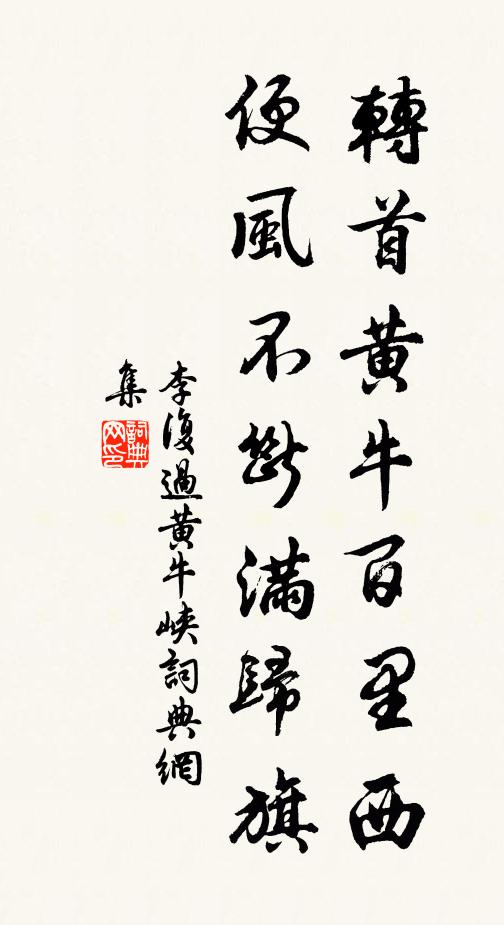 轉首黃牛百里西
便風不斷滿歸旗
李復過黃牛峽詞典網
集
詞典
网印